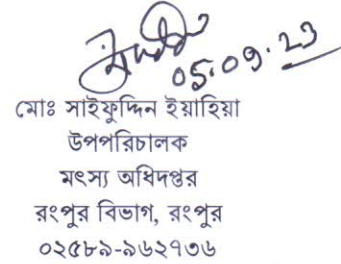 05.09.23
মোঃ সাইফুদ্দিন ইয়াহিয়া
উপপরিচালক
মৎস্য অধিদপ্তর
রংপুর বিভাগ, রংপুর
০২৫৮৯-৯৬২৭৩৬